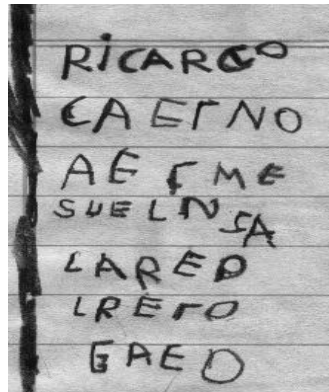 RiCARCO
CAErNO
AE rME
SUELN
SA
LARED
LRErO
EAEO